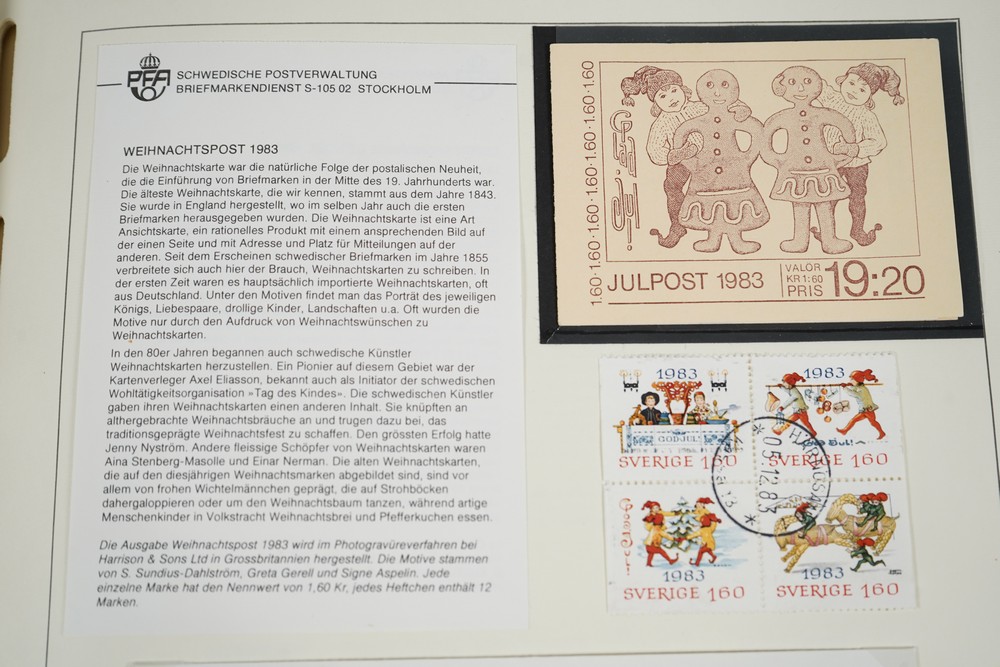 PFA
SCHWEDISCHE POSTVERWALTUNG
BRIEFMARKENDIENST S-105 02 STOCKHOLM
WEIHNACHTSPOST 1983
Die Weihnachtskarte war die natürliche Folge der postalischen Neuheit,
die die Einführung von Briefmarken in der Mitte des 19. Jahrhunderts war.
Die älteste Weihnachtskarte, die wir kennen, stammt aus dem Jahre 1843.
Sie wurde in England hergestellt, wo im selben Jahr auch die ersten
Briefmarken herausgegeben wurden. Die Weihnachtskarte ist eine Art
Ansichtskarte, ein rationelles Produkt mit einem ansprechenden Bild auf
der einen Seite und mit Adresse und Platz für Mitteilungen auf der
anderen. Seit dem Erscheinen schwedischer Briefmarken im Jahre 1855
verbreitete sich auch hier der Brauch, Weihnachtskarten zu schreiben. In
der ersten Zeit waren es hauptsächlich importierte Weihnachtskarten, oft
aus Deutschland. Unter den Motiven findet man das Porträt des jeweiligen
Königs, Liebespaare, drollige Kinder, Landschaften u.a. Oft wurden die
Motive nur durch den Aufdruck von Weihnachtswünschen zu
Weihnachtskarten.
In den 80er Jahren begannen auch schwedische Künstler
Weihnachtskarten herzustellen. Ein Pionier auf diesem Gebiet war der
Kartenverleger Axel Eliasson, bekannt auch als Initiator der schwedischen
Wohltätigkeitsorganisation «Tag des Kindes». Die schwedischen Künstler
gaben ihren Weihnachtskarten einen anderen Inhalt. Sie knüpften an
althergebrachte Weihnachtsbräuche an und trugen dazu bei, das
traditionsgeprägte Weihnachtsfest zu schaffen. Den grössten Erfolg hatte
Jenny Nyström. Andere fleissige Schöpfer von Weihnachtskarten waren
Aina Stenberg-Masolle und Einar Nerman. Die alten Weihnachtskarten,
die auf den diesjährigen Weihnachtsmarken abgebildet sind, sind vor
allem von frohen Wichtelmännchen geprägt, die auf Strohböcken
dahergaloppieren oder um den Weihnachtsbaum tanzen, während artige
Menschenkinder in Volkstracht Weihnachtsbrei und Pfefferkuchen essen.
Die Ausgabe Weihnachtspost 1983 wird im Photogravüreverfahren bei
Harrison & Sons Ltd in Grossbritannien hergestellt. Die Motive stammen
von S. Sundius-Dahlström, Greta Gerell und Signe Aspelin. Jede
einzelne Marke hat den Nennwert von 1,60 Kr, jedes Heftchen enthält 12
Marken.
1.60·1.60·1.60·1.60·1.60·1.60·1.60
God Jul!
JULPOST 1983
VALOR
KR 1:60
PRIS
19:20
1983
GODJUL!
SVERIGE 160
1983
God Jul!
SVERIGE 160
God Jul!
1983
SVERIGE 160
1983
SVERIGE 160
05.12.83